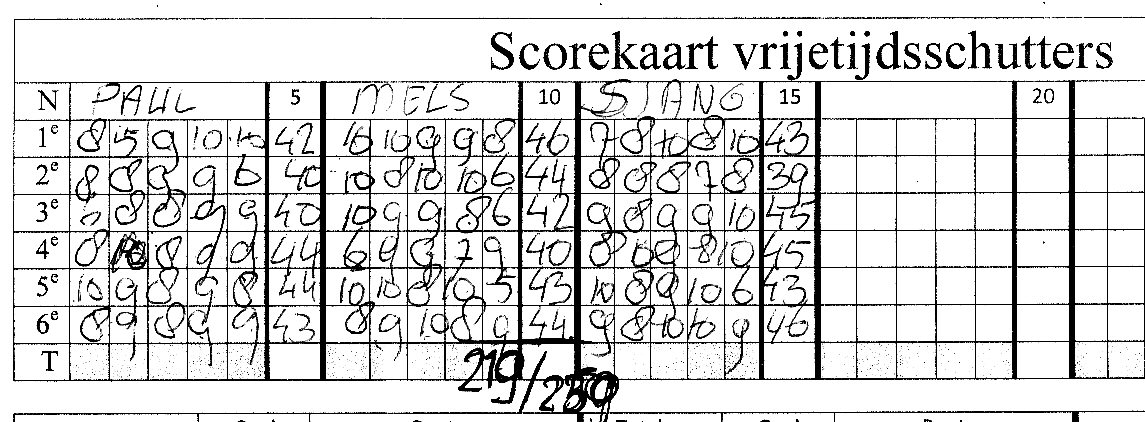 Scorekaart vrijetijdsschutters
N PAUL 5 MELS 10 SJANG 15 20
1e 8 5 9 10 10 42 10 10 9 9 8 46 7 8 10 8 10 43
2e 8 8 9 9 6 40 10 8 10 10 6 44 8 8 8 7 8 39
3e 8 8 9 9 40 10 9 9 8 6 42 9 8 9 9 10 45
4e 8 10 8 9 9 44 6 9 9 7 9 40 8 10 9 8 10 45
5e 10 9 8 9 8 44 10 10 8 10 5 43 10 8 9 10 6 43
6e 8 9 8 9 9 43 8 9 10 8 9 44 9 8 10 10 9 46
T
219/259